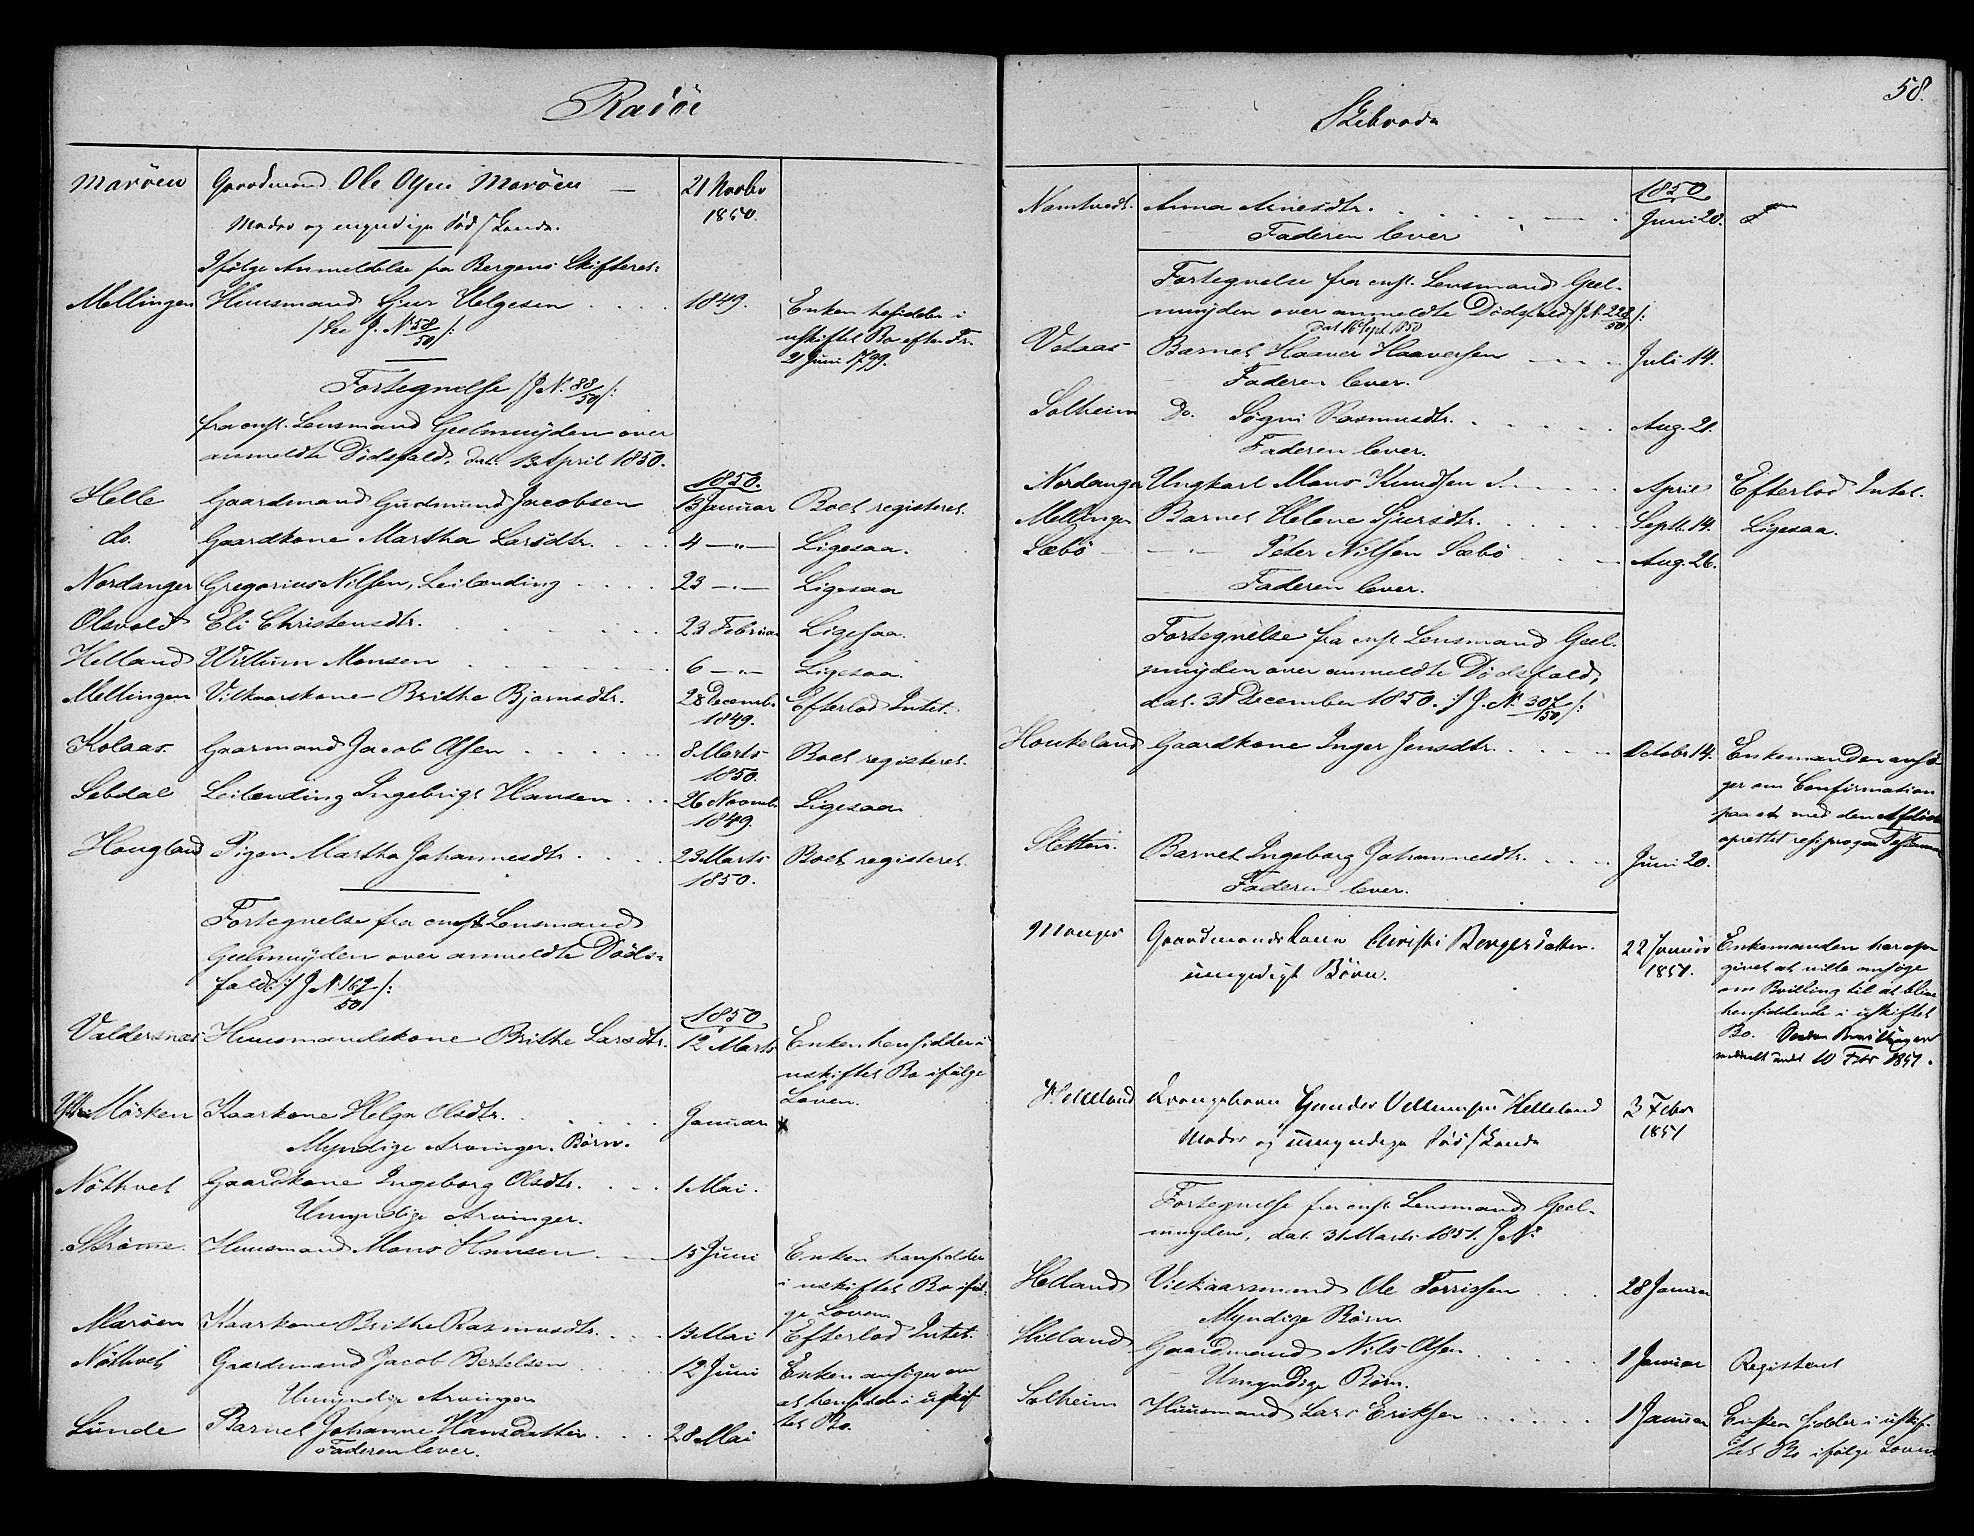 Radöe
Marøen Gaardmand Ole Olsen Marøen — 21 Novbr
1850.
Moder og umyndige Sødskende.
Ifølge Anmeldelse fra Bergens Skifteret:
Mellingen Huusmand Sjur Helgesen . . . . 1849. Enken hensidder i
/: See J. N 58/50 /: uskiftet Bo efter Fr.
21 Juni 1799.
Fortegnelse /: J. N. 88/50 /:
fra const. Lensmand Geelmuyden over
anmeldte Dødsfald, dat. 13 April 1850.
1850.
Helle Gaardmand Gudmund Jacobsen 13 Januar Boet registeret.
do. Gaardkone Martha Larsdtr. . . . 4 —"— Ligesaa.
Nordanger Gregorius Nilsen, Leilænding . . . . 23 —"— Ligesaa
Olsvold Eli Christensdtr. . . . . 23 Februar Ligesaa.
Helland Willum Monsen . . . . 6 —"— Ligesaa.
Mellingen Vilkaarskone Brithe Bjørnsdtr. 28 Decembr. Efterlod Intet.
1849.
Kolaas Gaarmand Jacob Olsen . . . . 8 Marts Boet registeret.
1850.
Sebdal Leilænding Ingebrigt Hansen . . . 26 Novemb. Ligesaa
1849.
Hougland Pigen Martha Johannesdtr. . . . . 23 Marts Boet registeret.
1850.
Fortegnelse fra const. Lensmand
Geelmuyden over anmeldte Døds-
fald. /: J N 167/50 /:
1850
Valdersnæs Huusmandskone Brithe Larsdtr. 12 Marts Enken hensidder i
uskiftet Bo ifølge
Loven.
Mørken Kaarkone Helga Olsdtr. . . . . Januar
Myndige Arvinger. Børn.
Nöthvet Gaardkone Ingeborg Olsdtr. . . . 1 Mai.
Umyndige Arvinger.
Strømme. Huusmand Mons Hansen . . . 15 Juni Enken hensidder
i uskiftet Bo iføl-
ge Loven.
Marøen Kaarkone Brithe Rasmusdtr. . . . 13 Mai Efterlod Intet.
Nöthvet Gaardmand Jacob Bertelsen . . . 12 Juni Enken ansøger om
Umyndige Arvinger at hensidde i uskif-
tet Bo.
Lunde Barnet Johanne Hansdatter . . . 28 Mai
Faderen lever.
58.
Skibrede
1850
Namtvedt. Anna Arnesdtr. . . . . Juni 20.
Faderen lever
Fortegnelse fra const. Lensmand Geel-
muyden over anmeldte Dødsfald /: J. N. 228/50 /:
dat 16 Sept 1850
Vetaas Barnet Haaver Haaversen . . . . Juli 14.
Faderen lever.
Solheim Do. Søgni Rasmusdtr. . . . . Aug. 21.
Faderen lever.
Nordanger Ungkarl Mons Knudsen . . . . April Efterlod Intet.
Mellingen Barnet Helene Sjursdtr. . . . . Septb. 14. Ligesaa.
Sæbö —"— Peter Nilsen Sæbö . . . Aug. 26.
Faderen lever.
Fortegnelse fra const Lensmand Geel-
muyden over anmeldte Dødsfald,
dat. 31 December 1850. /: J. N. 307/50 /:
Houkeland Gaardkone Inger Jensdtr. . . . . Octobr 14. Enkemanden ansö-
ger om Confirmation
paa et med den Afdöde
oprettet reciproque Testament
Sletten. Barnet Ingeborg Johannesdtr. . . . Juni 20.
Faderen lever.
Manger Gaardmandskone Christi Bergesdatter. 22 Januar Enkemanden har op-
umyndige Börn. 1851. givet at ville ansöge
om Bevilling til at blive
hensiddende i uskiftet
Bo.
10 Febr 1851.
Helleland Drengebarn Gunder Villumsen Helleland 3 Febr
1851
Moder og umyndige Sødskende
Fortegnelse fra const Lensmand Geel-
muyden, dat. 31 Marts 1851. J. N:
Helland Vilkaarsmand Ole Torrissen . . . 28 Januar
Myndige Børn.
Helland Gaardmand Nils Olsen . . . . 1 Januar Registeret
Umyndige Børn.
Solheim Huusmand Lars Eriksen . . . . . 1 Januar Enken sidder i uskif-
tet Bo ifølge Loven